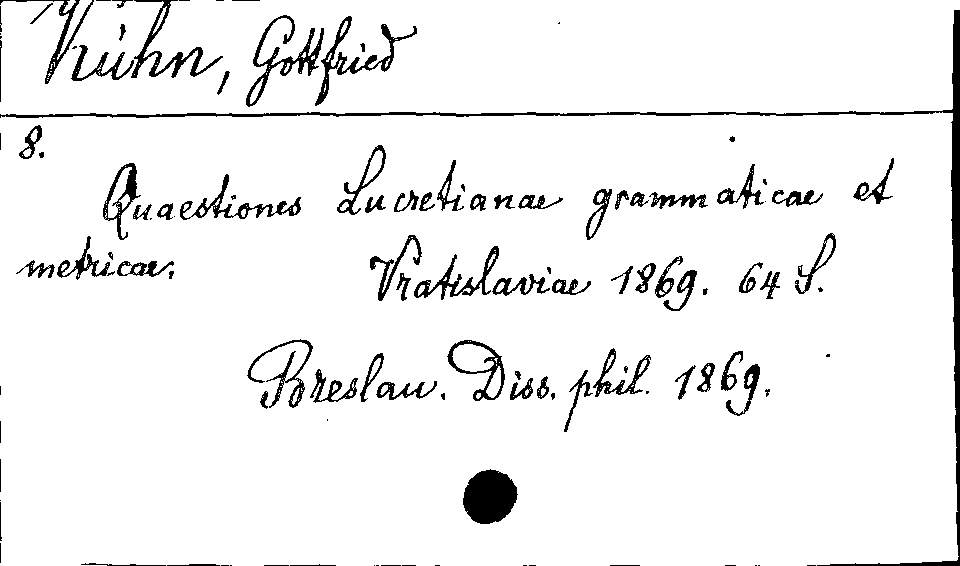 Kühn, Gottfried
8.
Quaestiones Lucretianae grammaticae et
metricae. Vratislaviae 1869. 64 S.
Breslau. Diss. phil. 1869.